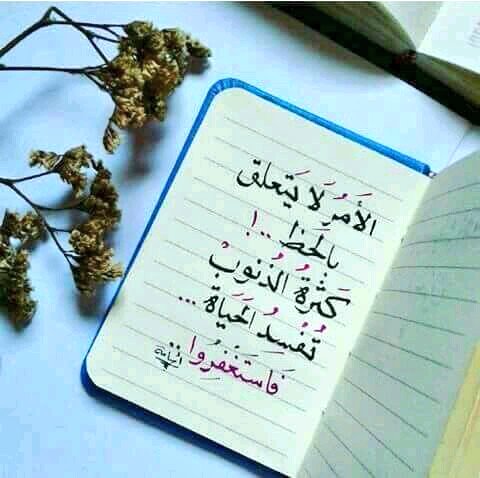 الأَمرُ لَا يَتَعلق
بالحَظِ ..!
كَثرةُ الذُنوبْ
تُفسِدُ الحَيَاة ...
فَاستَغفِرُوا